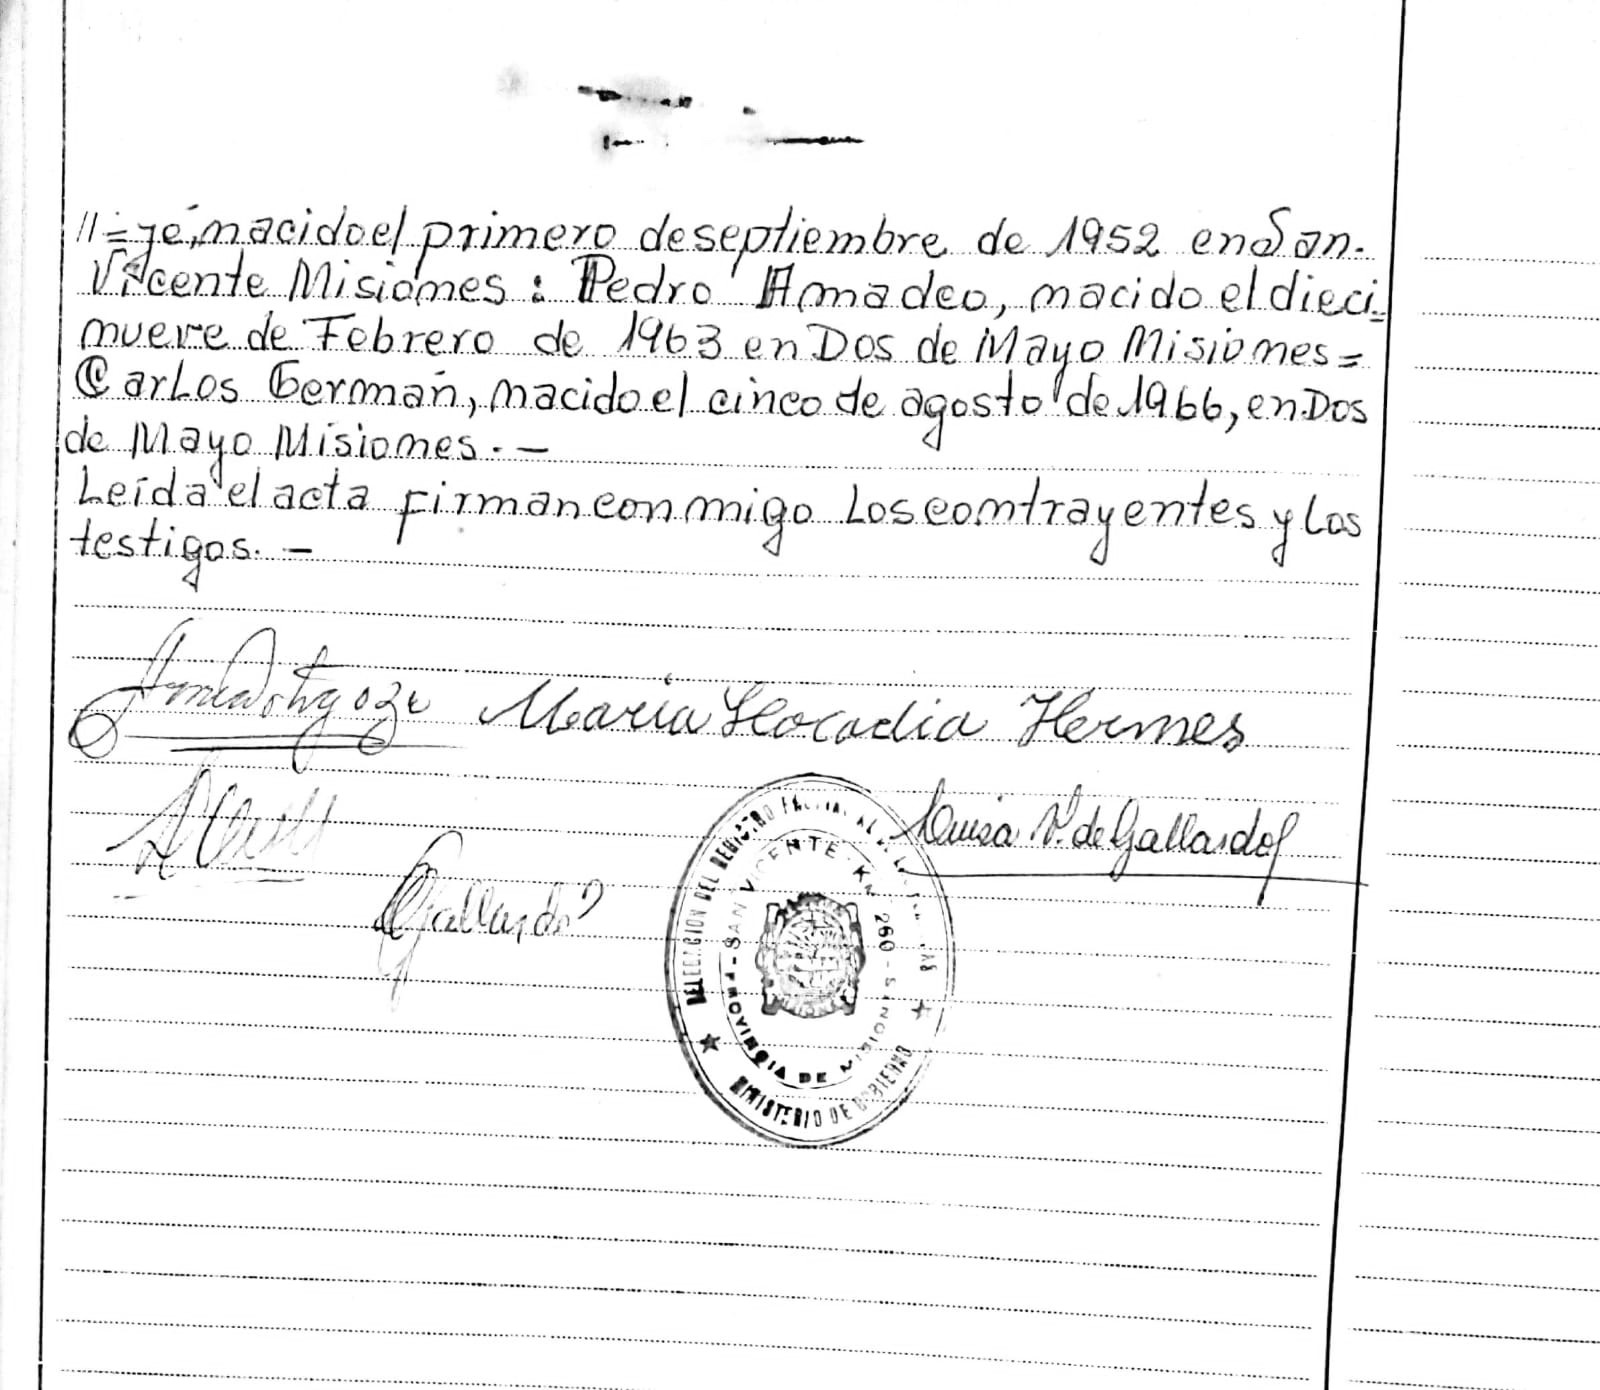 //=je, nacido el primero de septiembre de 1952 en San.
Vicente Misiones: Pedro Amadeo, nacido el dieci=
nueve de Febrero de 1963 en Dos de Mayo Misiones=
Carlos Germán, nacido el cinco de agosto de 1966, en Dos
de Mayo Misiones. -
Leída el acta firman conmigo Los contrayentes y los
testigos. -
María Leocadia Hermes
Luisa V. de Gallardo
Gallardo
DELEGACION DEL REGISTRO PROVINCIAL DE LAS PERSONAS
SAN VICENTE - Km 260 - MISIONES
PROVINCIA DE MISIONES
MINISTERIO DE GOBIERNO